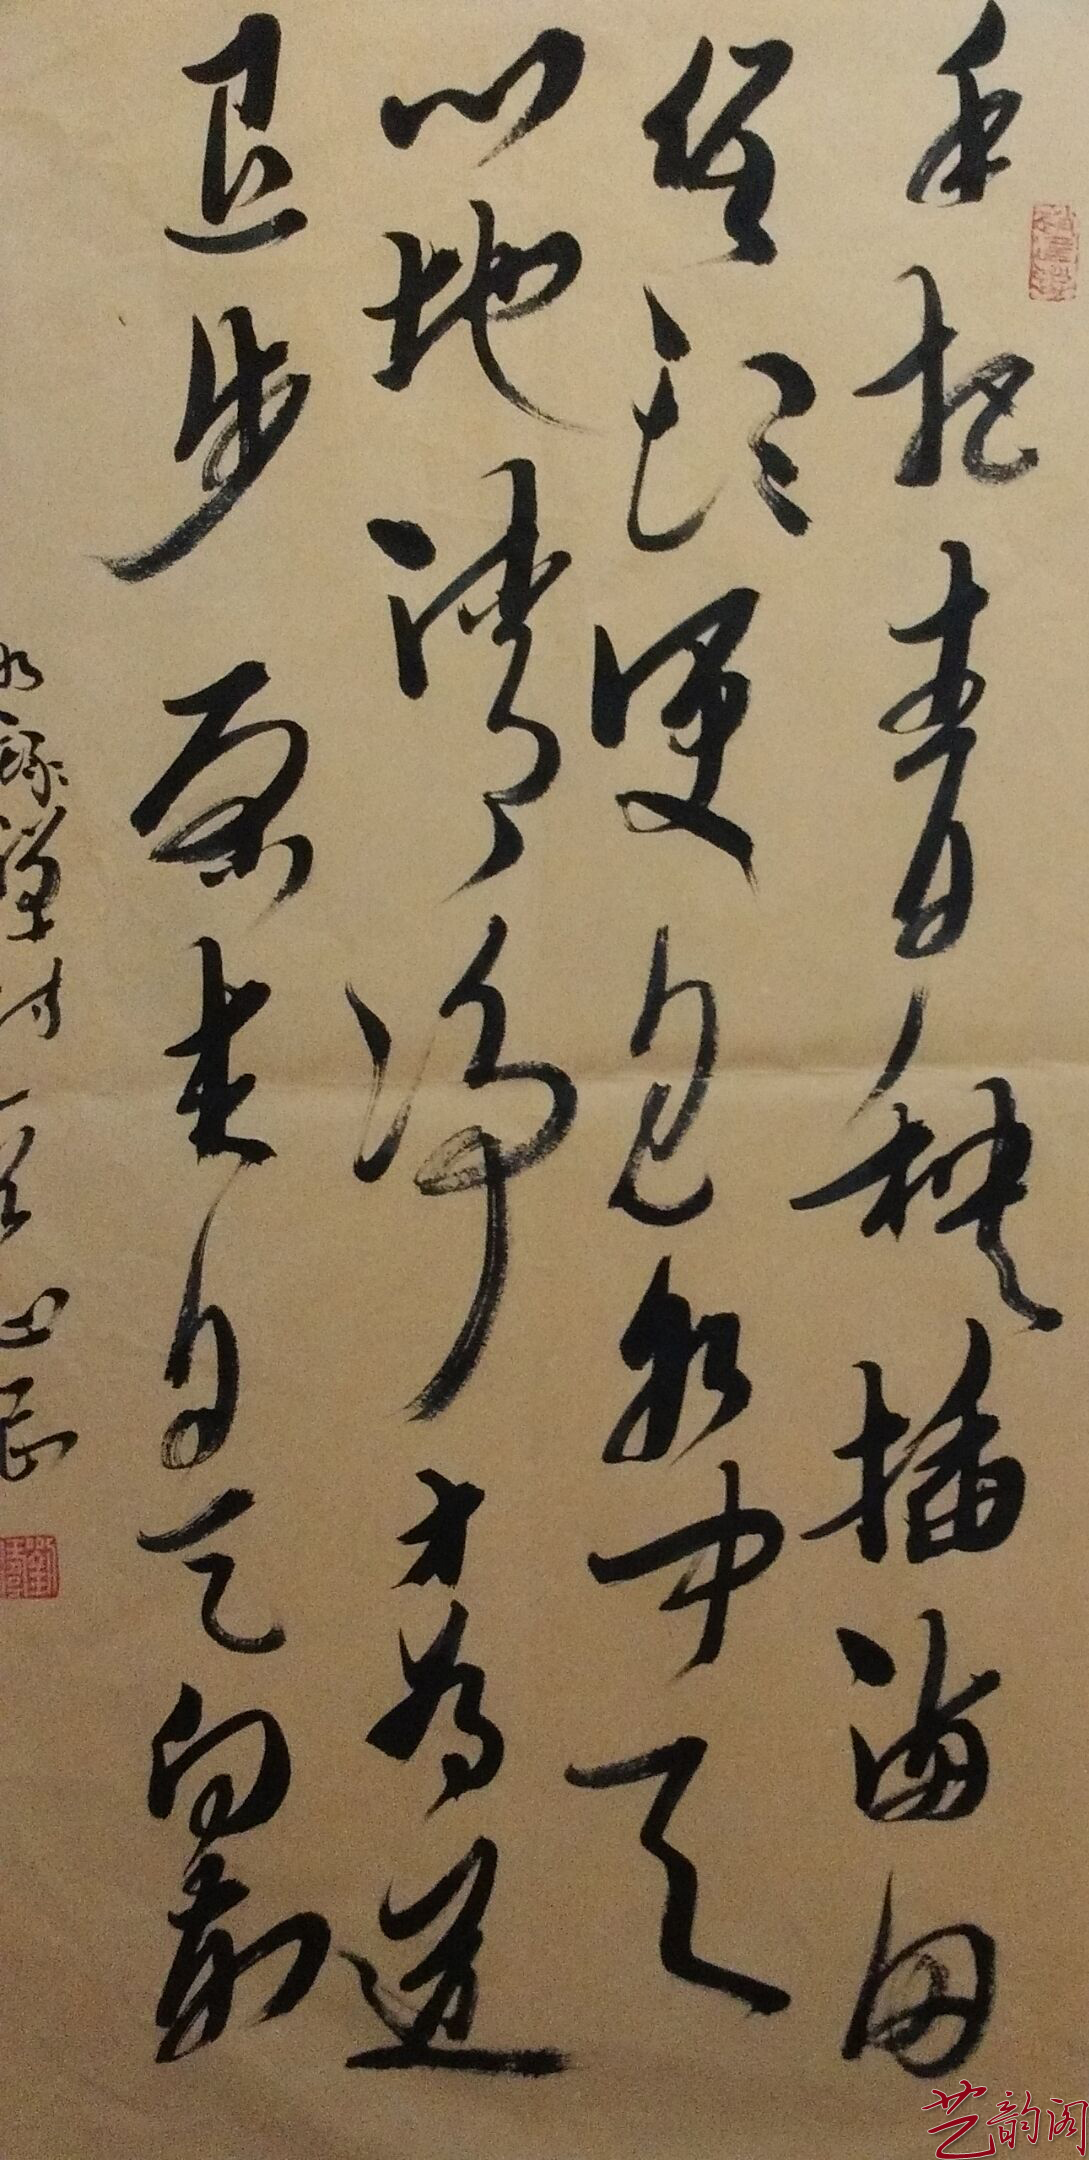 手把青秧插满田
低头便见水中天
心地清净方为道
退步原来是向前
录禅诗一首
艺韵阁